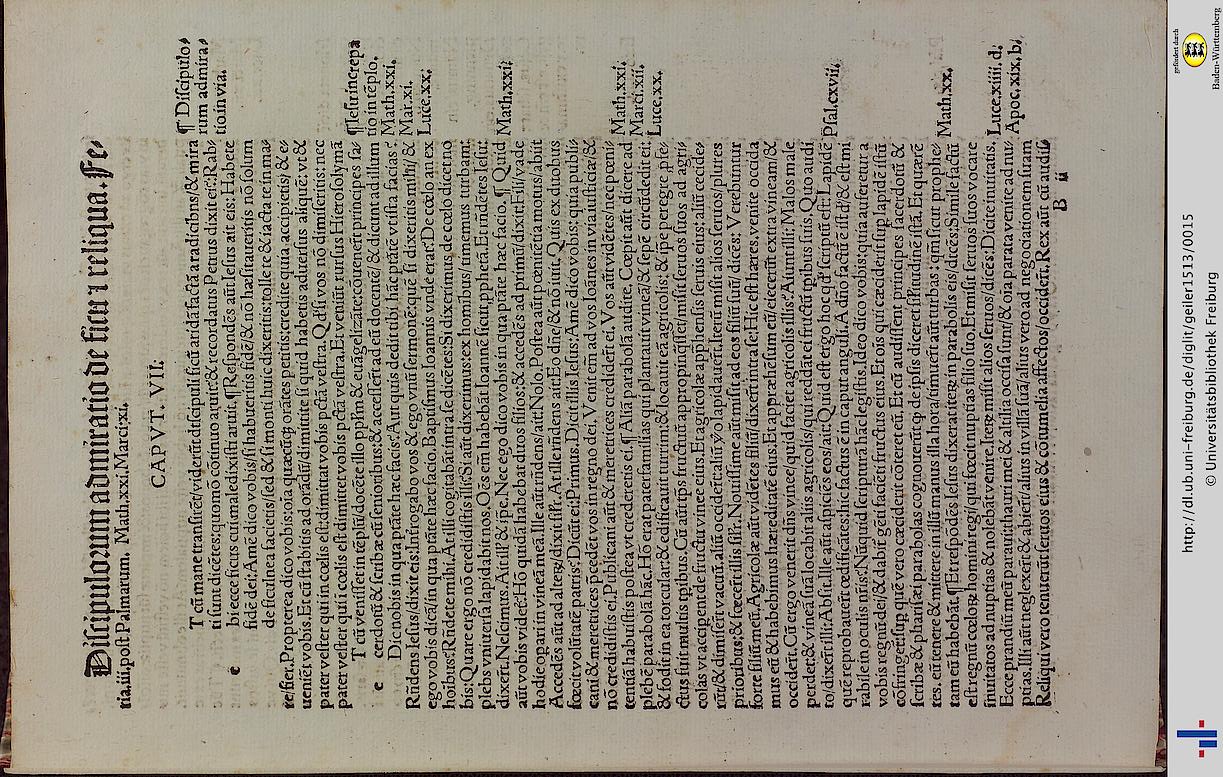 Discipulorum admiratio de ficu: ⁊ reliqua. Fe⸗
ria.iii.post Palmarum. Math.xxi.Marci.xi.
CAPVT. VII.
T cū mane transirēt/viderūt discipuli ficū aridā factā a radicibus/& mira
ti sunt dicētes: quomō cōtinuo aruit: & recordatus Petrus dixit ei: Rab⸗
bi ecce ficus cui maledixisti aruit. ¶ Respondēs aūt Iesus ait eis: Habete
fidē dei: Amē dico vobis/si habueritis fidē/& nō hæsitaueritis nō solum
de ficulnea facietis/sed & si monti huic dixeritis: tolle te & iacta te in ma⸗
e
re/fiet. Propterea dico vobis: oīa quæcūq; orātes petitis: credite quia accipietis/ & e⸗
ueniēt vobis. Et cū stabitis ad orādū/dimittite si quid habetis aduersus aliquē: vt &
pater vester qui in cœlis est: dimittat vobis pctā vestra. Qd si vos nō dimiseritis: nec
pater vester qui i cœlis est: dimittet vobis pctā vestra. Et veniūt rursus Hierosolymā
¶ Discipulo⸗
rum admira⸗
tio in via.
T cū venisset in tēplū/docēte illo pplm & euāgelizāte: cōuenerūt principes sa⸗
cerdotū/& scribæ cū senioribus/& accesserūt ad eū docentē/ & dicunt ad illum
e
Dic nobis in qua ptāte hæc facis: Aut quis dedit tibi hāc ptātē vt ista facias?
Rn̄dens Iesus/dixit eis: Introgabo vos & ego vnū sermonē: quē si dixeritis mihi/ &
ego vobis dicā/in qua ptāte hæc facio. Baptismus Ioannis vnde erat? De cœlo an ex
hoībus? Rn̄dete mihi. At illi cogitabāt intra se dicētes: Si dixerimus, de cœlo dicet no
bis: Quare ergo nō credidistis illi? Si aūt dixerimus: ex hominibus/ timemus turbam:
plebs vniuersa lapidabit nos. Oēs em̄ habebāt Ioannē sicut pphetā. Et rn̄dētes Iesu:
dixerūt. Nescimus. Ait illis & ipse. Nec ego dico vobis in qua ptāte hæc facio. ¶ Quid
aūt vobis videt? Hō quidā habebat duos filios: & accedēs ad primū/dixit: Fili/vade
hodie operari in vineā meā. Ille aūt rn̄dens/ait: Nolo. Postea aūt pœnitētia motus/abiit
Accedēs aūt ad alterū/dixit sīlr. At ille rn̄dens ait: Eo dn̄e/& nō iuit. Quis ex duobus
fœcit volūtatē patris? Dicūt ei: Primus. Dicit illis Iesus: Amē dico vobis: quia publi⸗
cani & meretrices pcedēt vos in regno dei. Venit em̄ ad vos Ioānes in via iusticiæ/&
nō credidistis ei. Publicani aūt & meretrices crediderūt ei. Vos aūt vidētes/nec pœni⸗
tentiā habuistis postea vt crederetis ei. ¶ Aliā parabolā audite. Cœpit aūt dicere ad
plebē parabolā hāc. Hō erat paterfamilias: qui plantauit vineā/& sepē circūdedit ei:
& fodit in ea torcular: & ædificauit turrim: & locauit eā agricolis: & ipse peregre pfe⸗
ctus fuit multis tpibus. Cū aūt tps fructuū appropinquasset/misit seruos suos ad agri⸗
colas vt acciperent de fructu vineæ eius. Et agricolæ apphēsis seruis eius: aliū cecide⸗
rūt/& dimiserūt vacuū. aliū occiderūt: aliū vo lapidauerūt. Iterū misit alios seruos/plures
prioribus: & fœcerūt illis sīlr. Nouissime aūt misit ad eos filiū suū dicēs: Verebuntur
forte filiū meū. Agricolæ aūt vidētes filiū/dixerūt intra se: Hic est hæres, venite occida
mus eū/& habebimus hæreditatē eius. Et apprahēsum eū/eiecerūt extra vineam/&
occiderūt. Cū ergo venerit dn̄s vineæ/quid faciet agricolis illis? Aiunt illi: Malos male
perdet/& vineā suā locabit aliis agricolis/qui reddāt ei fructū tpibus suis. Quo audi
to/dixerūt illi: Absit. Ille aūt aspiciēs eos/ait: Quid est ergo hoc qd scriptū est: Lapidē
quē reprobauerūt ædificātes: hic factus ē in caput anguli. A dn̄o factū ē istud/& est mi
rabile in oculis nr̄is? Nūquid scripturā hāc legistis. Ideo dico vobis: quia auferetur a
vobis regnū dei/& dabit gēti faciēti fructus eius. Et oīs qui ceciderit sup lapidē istū
cōfringet: sup quē vero ceciderit cōteret eū. Et cū audissent principes sacerdotū &
scribæ & pharisæi parabolas: cognouerūt q; de ipsis diceret similitudinē istā. Et quærē
tes eū tenere & mittere in illū manus illa hora/timuerūt aūt turbas: qm̄ sicut prophe⸗
tam eū habebāt. ¶ Et respōdēs Iesus dixit iterū in parabolis eis/dicēs: Simile factū
est regnū cœlorū homini regi/qui fœcit nuptias filio suo. Et misit seruos suos vocare
inuitatos ad nuptias & nolebāt venire. Iterū misit alios seruos/dicēs: Dicite inuitatis,
Ecce prandiū meū paraui: tauri mei & altilia occisa sunt/& oīa parata: venite ad nu⸗
ptias. Illi aūt neglexerūt & abierūt/alius in villā suā/alius vero ad negociationē suam
Reliqui vero tenuerūt seruos eius & cōtumelia affectos/occiderūt. Rex aūt cū audis⸗
¶ Iesu increpa
tio in tēplo.
Math.xxi.
Mar.xi.
Luce.xx.
Math.xxi.
Math.xxi.
Marci.xii.
Luce.xx.
Psal.cxvii.
Math.xx.
Luce.xiiii.d.
Apoc.xix.b.
B ii
gefördert durch
Baden-Württemberg
http://dl.ub.uni-freiburg.de/diglit/geiler1513/0015
© Universitätsbibliothek Freiburg